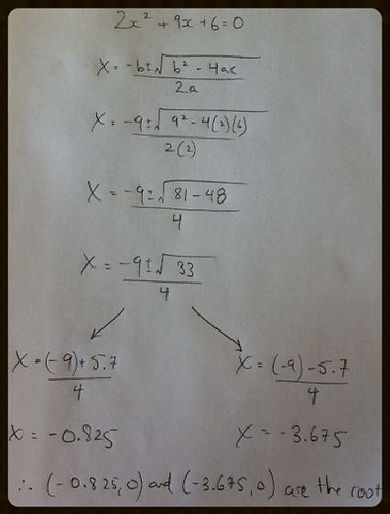 2x² + 9x + 6 = 0
x = -b ± √b² - 4ac / 2a
x = -9 ± √9² - 4(2)(6) / 2(2)
x = -9 ± √81 - 48 / 4
x = -9 ± √33 / 4
x = (-9) + 5.7 / 4
x = (-9) - 5.7 / 4
x = -0.825
x = -3.675
∴ (-0.825, 0) and (-3.675, 0) are the root